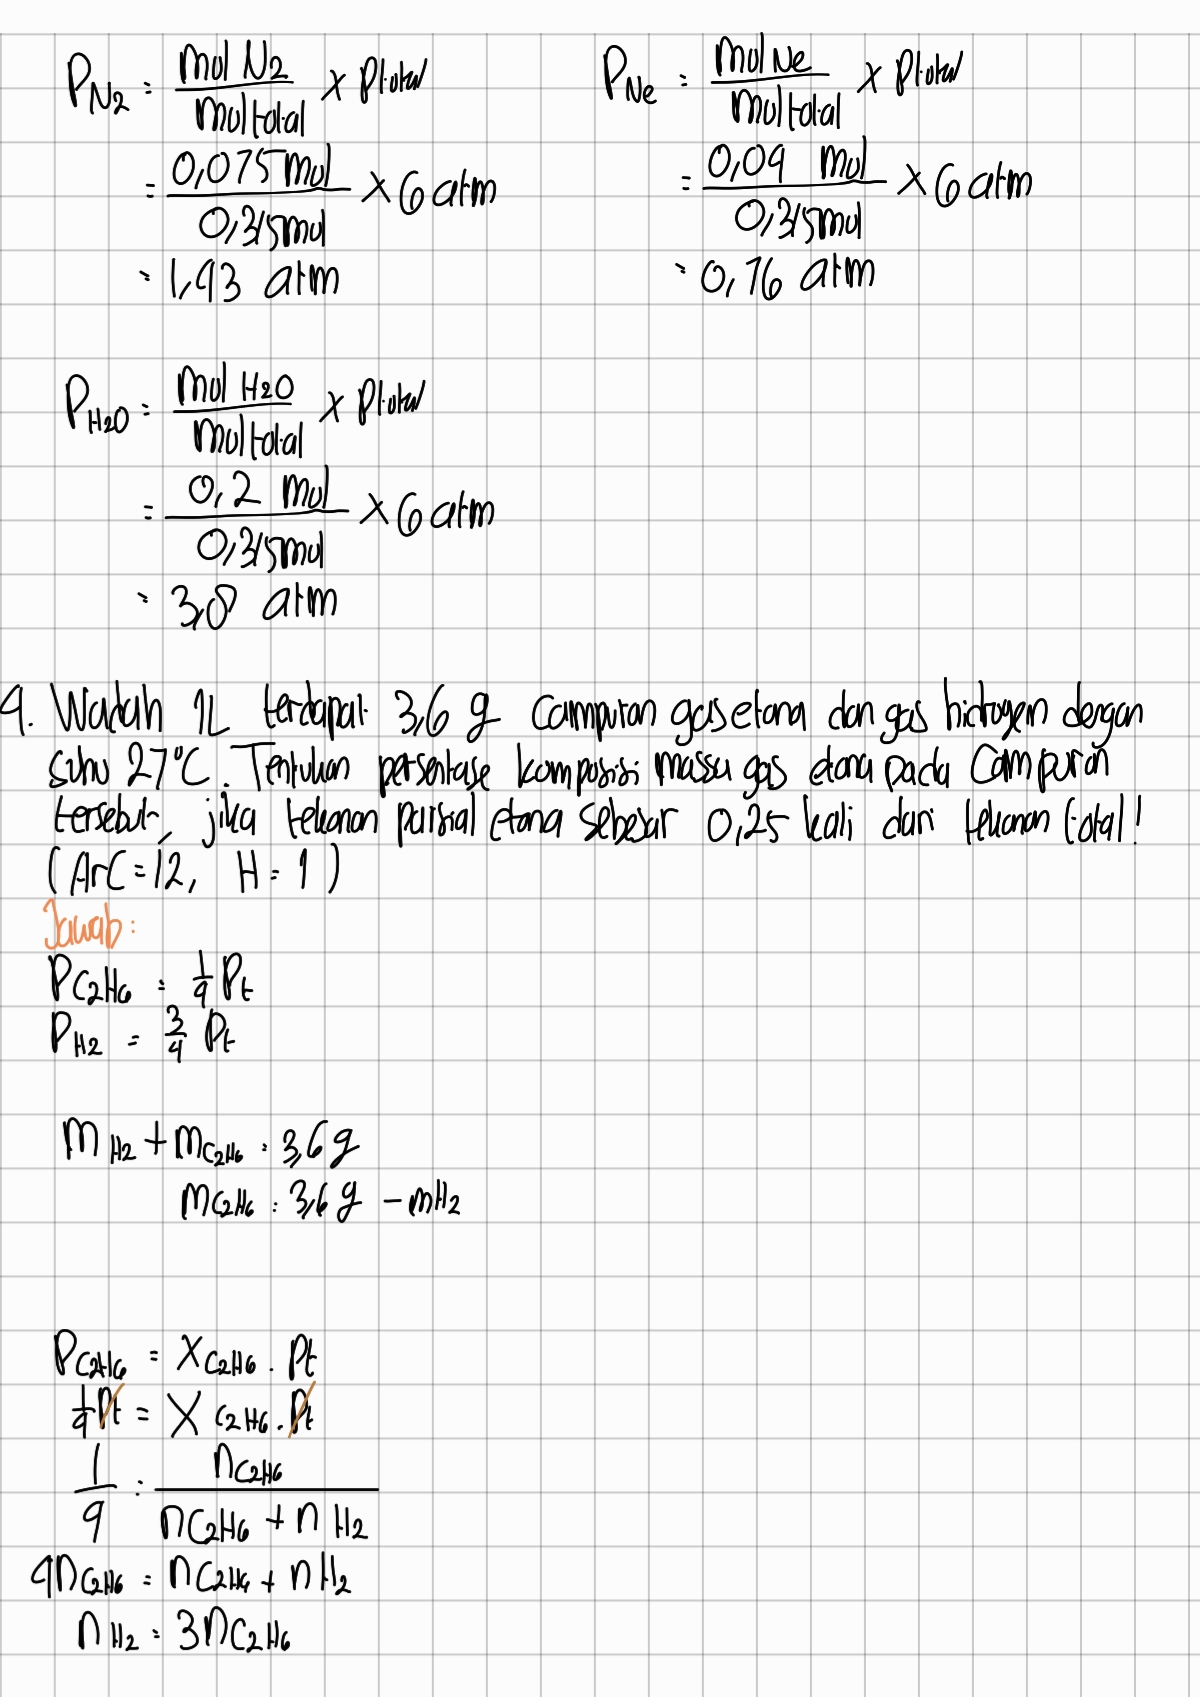 P_N2 = mol N2 / mol total × Ptotal
= 0,075 mol / 0,315 mol × 6 atm
= 1,43 atm
P_Ne = mol Ne / mol total × Ptotal
= 0,04 mol / 0,315 mol × 6 atm
= 0,76 atm
P_H2O = mol H2O / mol total × Ptotal
= 0,2 mol / 0,315 mol × 6 atm
= 3,8 atm
4. Wadah 1L terdapat 3,6 g Campuran gas etana dan gas hidrogen dengan
suhu 27°C. Tentukan persentase komposisi massa gas etana pada Campuran
tersebut, jika tekanan parsial etana sebesar 0,25 kali dari tekanan total!
(Ar C = 12, H = 1)
Jawab:
P C2H6 = 1/4 Pt
P H2 = 3/4 Pt
m H2 + m C2H6 = 3,6 g
m C2H6 = 3,6 g - m H2
P C2H6 = X C2H6 . Pt
1/4 Pt = X C2H6 . Pt
1/4 = n C2H6 / n C2H6 + n H2
4n C2H6 = n C2H6 + n H2
n H2 = 3n C2H6